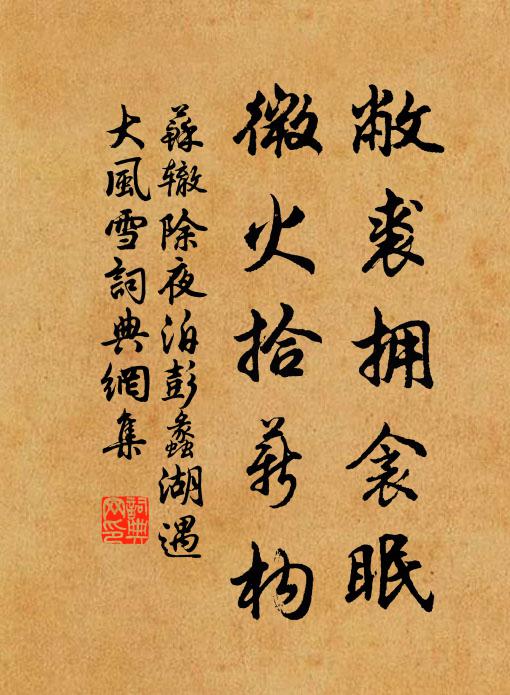 敝裘拥衾眠
微火拾薪构
蘇辙除夜泊彭蠡湖遇
大風雪詞典網集
詞典
网印